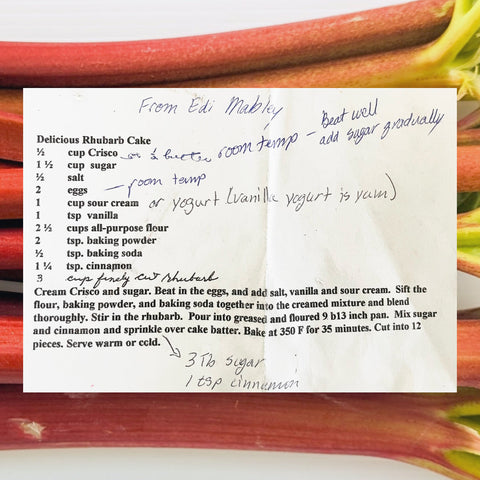 From Edi Mabley
Delicious Rhubarb Cake
½ cup Crisco or ½ butter room temp - Beat well add sugar gradually
1 ½ cup sugar
½ salt
2 eggs - room temp
1 cup sour cream or yogurt (vanilla yogurt is yum)
1 tsp vanilla
2 ½ cups all-purpose flour
2 tsp. baking powder
½ tsp. baking soda
1 ¼ tsp. cinnamon
3 cup finely cut rhubarb
Cream Crisco and sugar. Beat in the eggs, and add salt, vanilla and sour cream. Sift the
flour, baking powder, and baking soda together into the creamed mixture and blend
thoroughly. Stir in the rhubarb. Pour into greased and floured 9 b13 inch pan. Mix sugar
and cinnamon and sprinkle over cake batter. Bake at 350 F for 35 minutes. Cut into 12
pieces. Serve warm or cold.
3 Tb sugar
1 tsp cinnamon